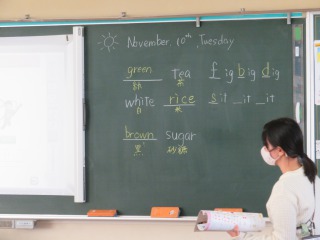 November 10th, Tuesday
green tea fig big dig
緑 茶
white rice sit _it _it
白 米
brown sugar
黒 砂糖